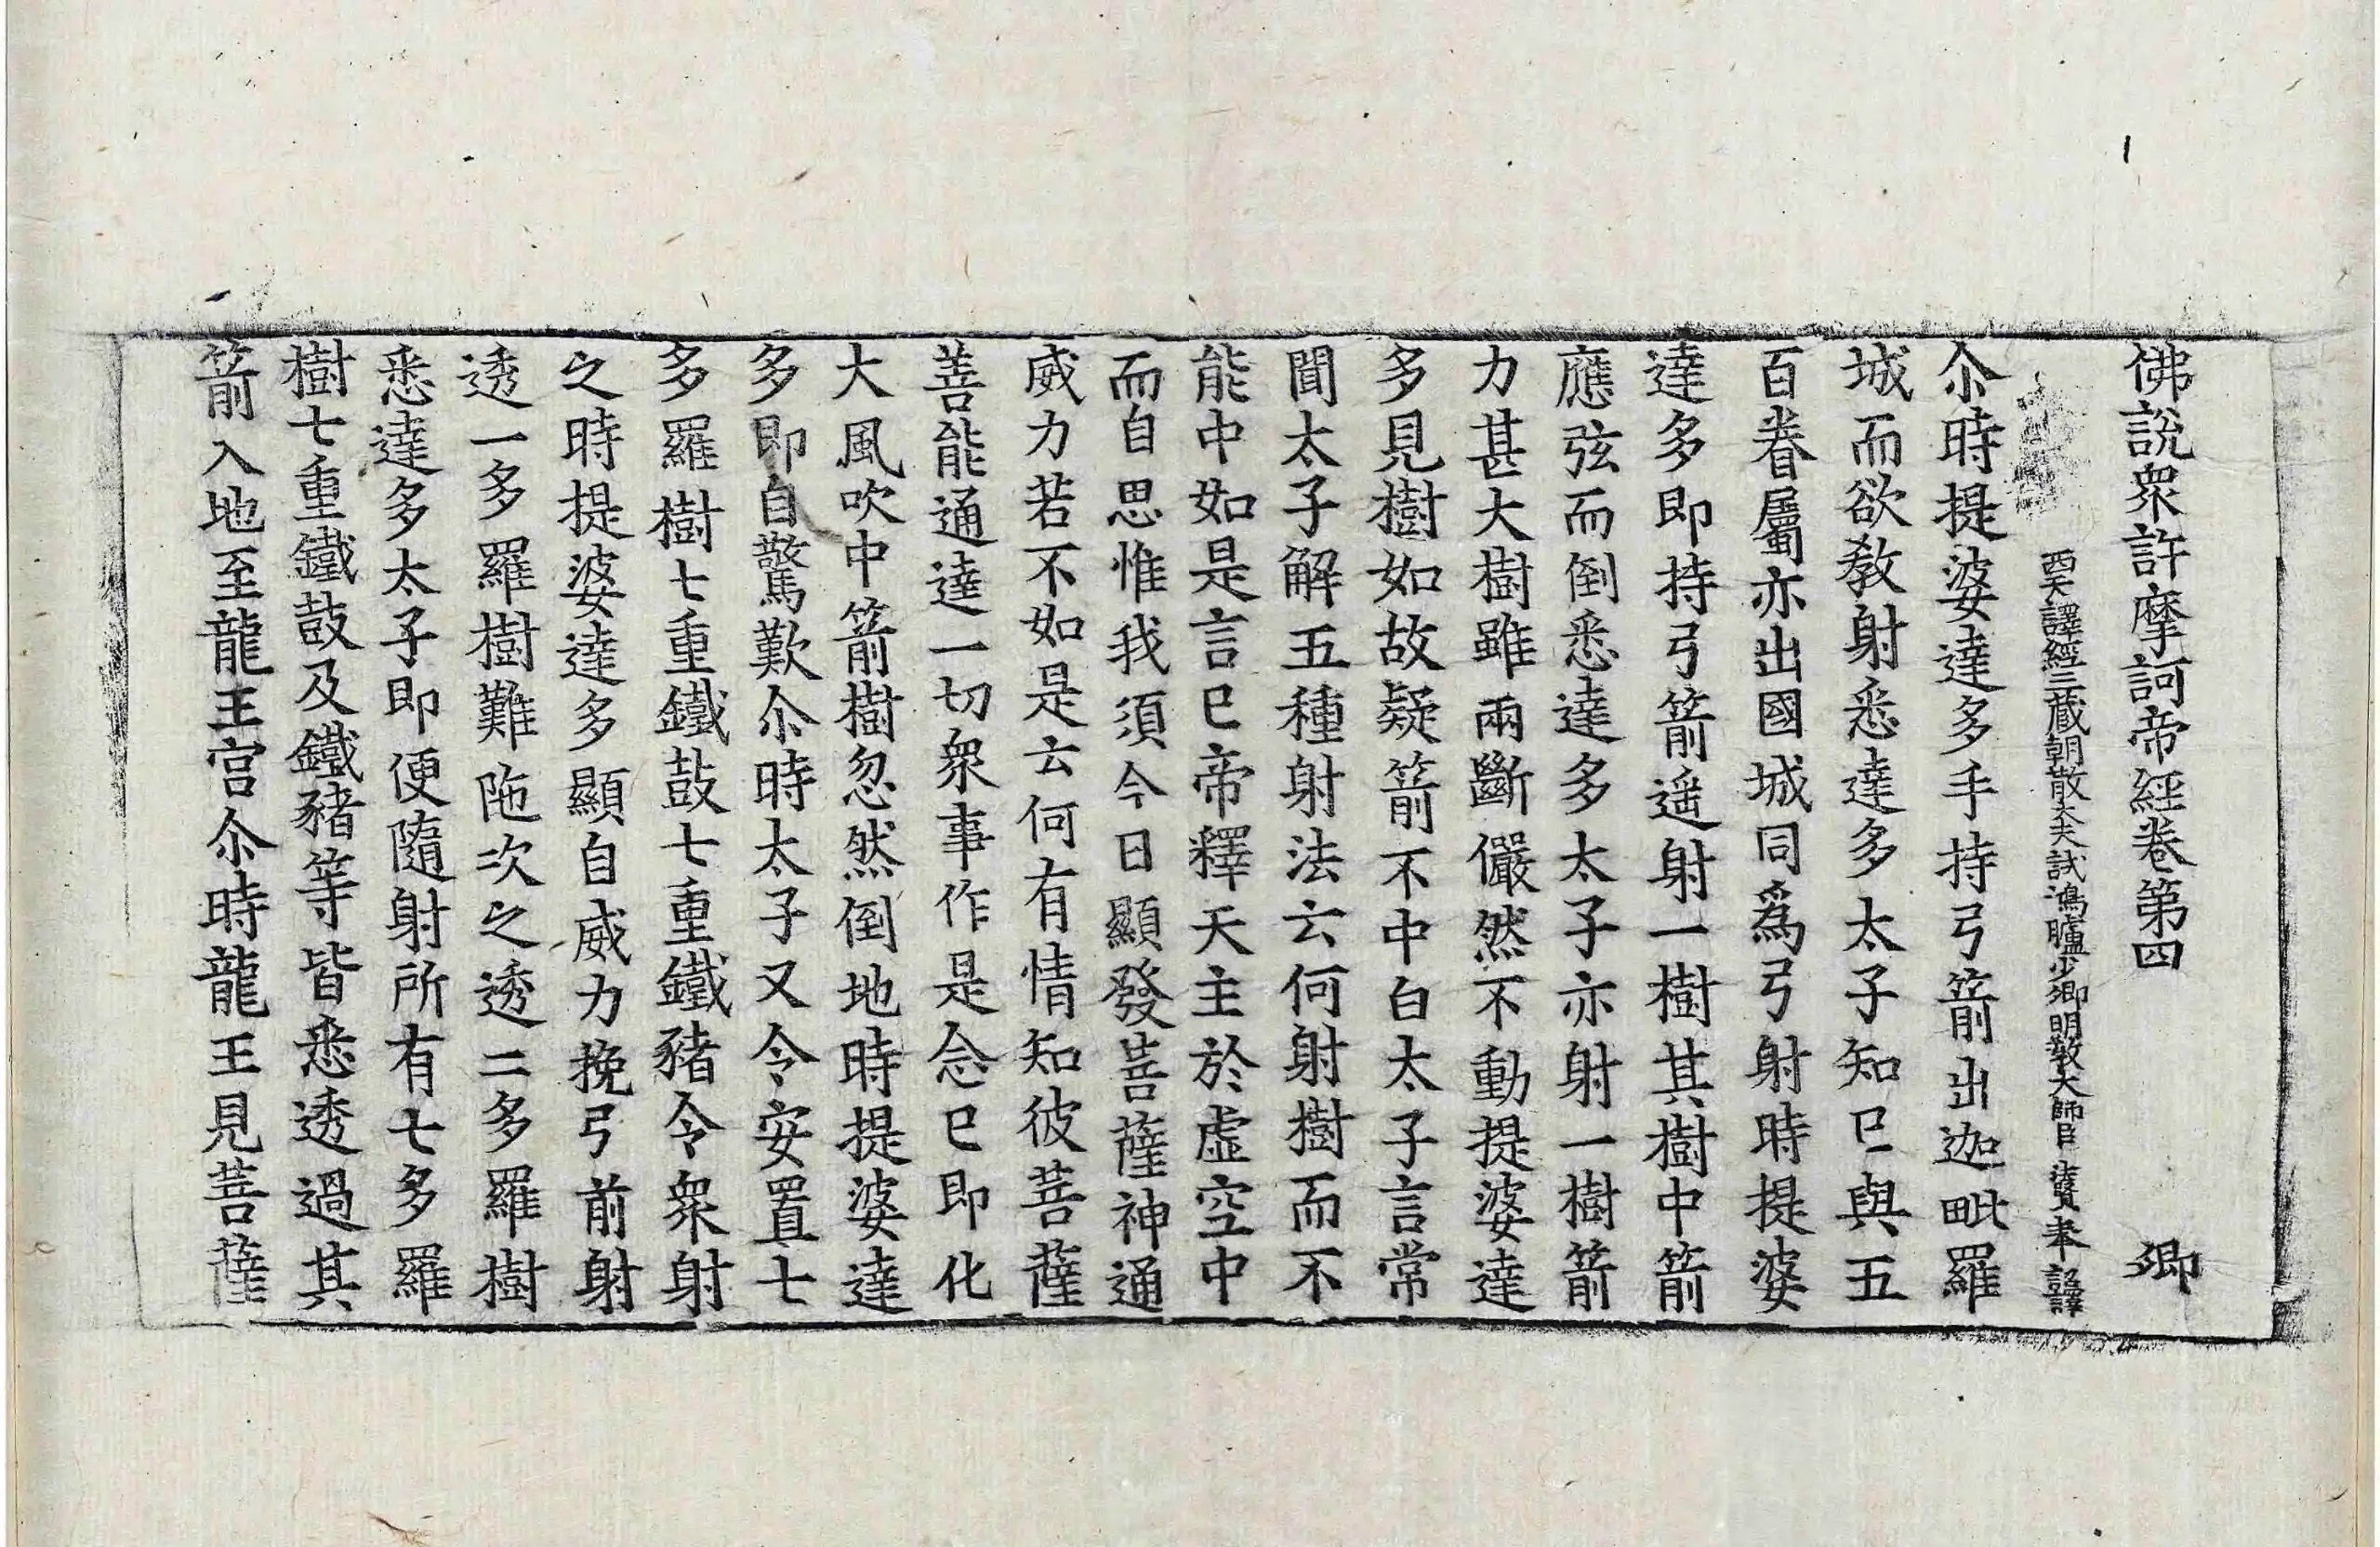 佛說衆許摩訶帝經卷第四 卿
西天譯經三藏朝散大夫試鴻臚少卿明教大師臣法賢奉 詔譯
尒時提婆達多手持弓箭出迦毗羅
城而欲教射悉達多太子知已與五
百眷屬亦出國城同爲弓射時提婆
達多即持弓箭遥射一樹其樹中箭
應弦而倒悉達多太子亦射一樹箭
力甚大樹雖兩斷儼然不動提婆達
多見樹如故疑箭不中白太子言常
聞太子解五種射法云何射樹而不
能中如是言已帝釋天主於虛空中
而自思惟我須今日顯發菩薩神通
威力若不如是云何有情知彼菩薩
善能通達一切衆事作是念已即化
大風吹中箭樹忽然倒地時提婆達
多即自驚歎尒時太子又令安置七
多羅樹七重鐵鼓七重鐵豬令衆射
之時提婆達多顯自威力挽弓前射
透一多羅樹難陁次之透二多羅樹
悉達多太子即便隨射所有七多羅
樹七重鐵鼓及鐵豬等皆悉透過其
箭入地至龍王宮尒時龍王見菩薩